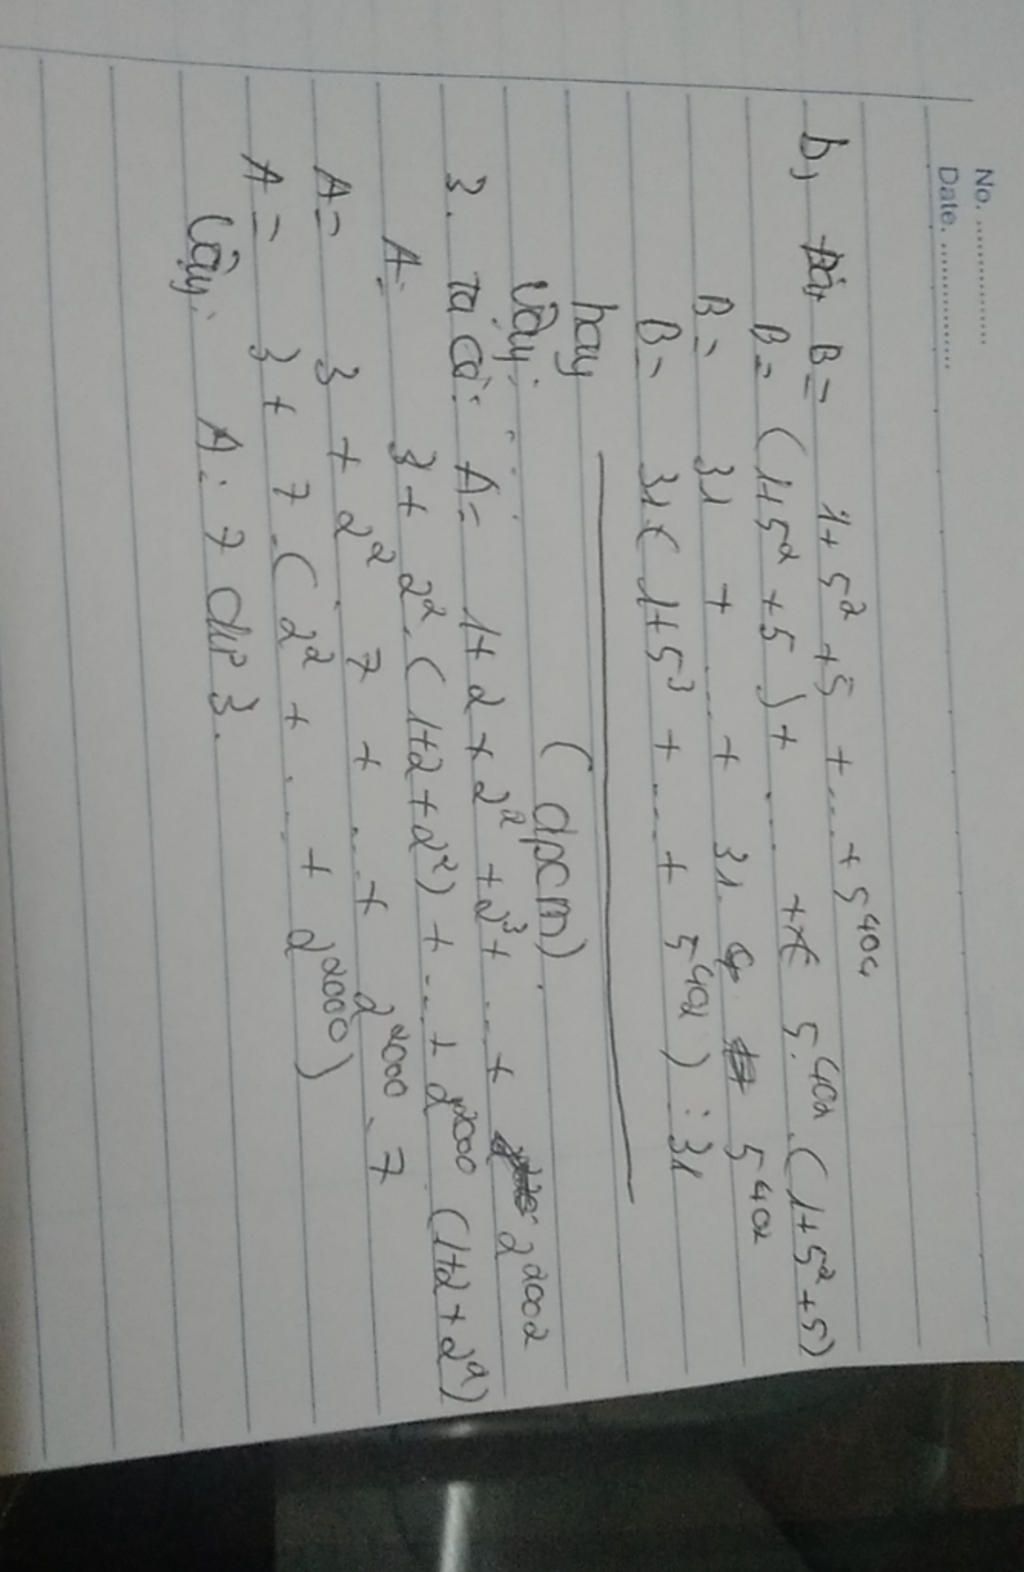 No. ...............
Date. ...............
b, B = 1 + 5² + 5 + ... + 5⁴⁰⁴
B = (1 + 5² + 5) + ... + 5.⁴⁰² (1 + 5² + 5)
B = 31 + ... + 31. 5⁴⁰²
B = 31 (1 + 5³ + ... + 5⁴⁰²) : 31
hay
Vậy: ... (đpcm).
3. Ta có: A = 1 + 2 + 2² + 2³ + ... + 2²⁰⁰²
A = 3 + 2². (1 + 2 + 2²) + ... + 2²⁰⁰⁰ (1 + 2 + 2²)
A = 3 + 2². 7 + ... + 2²⁰⁰⁰. 7
A = 3 + 7. (2² + ... + 2²⁰⁰⁰)
Vậy: A : 7 dư 3.